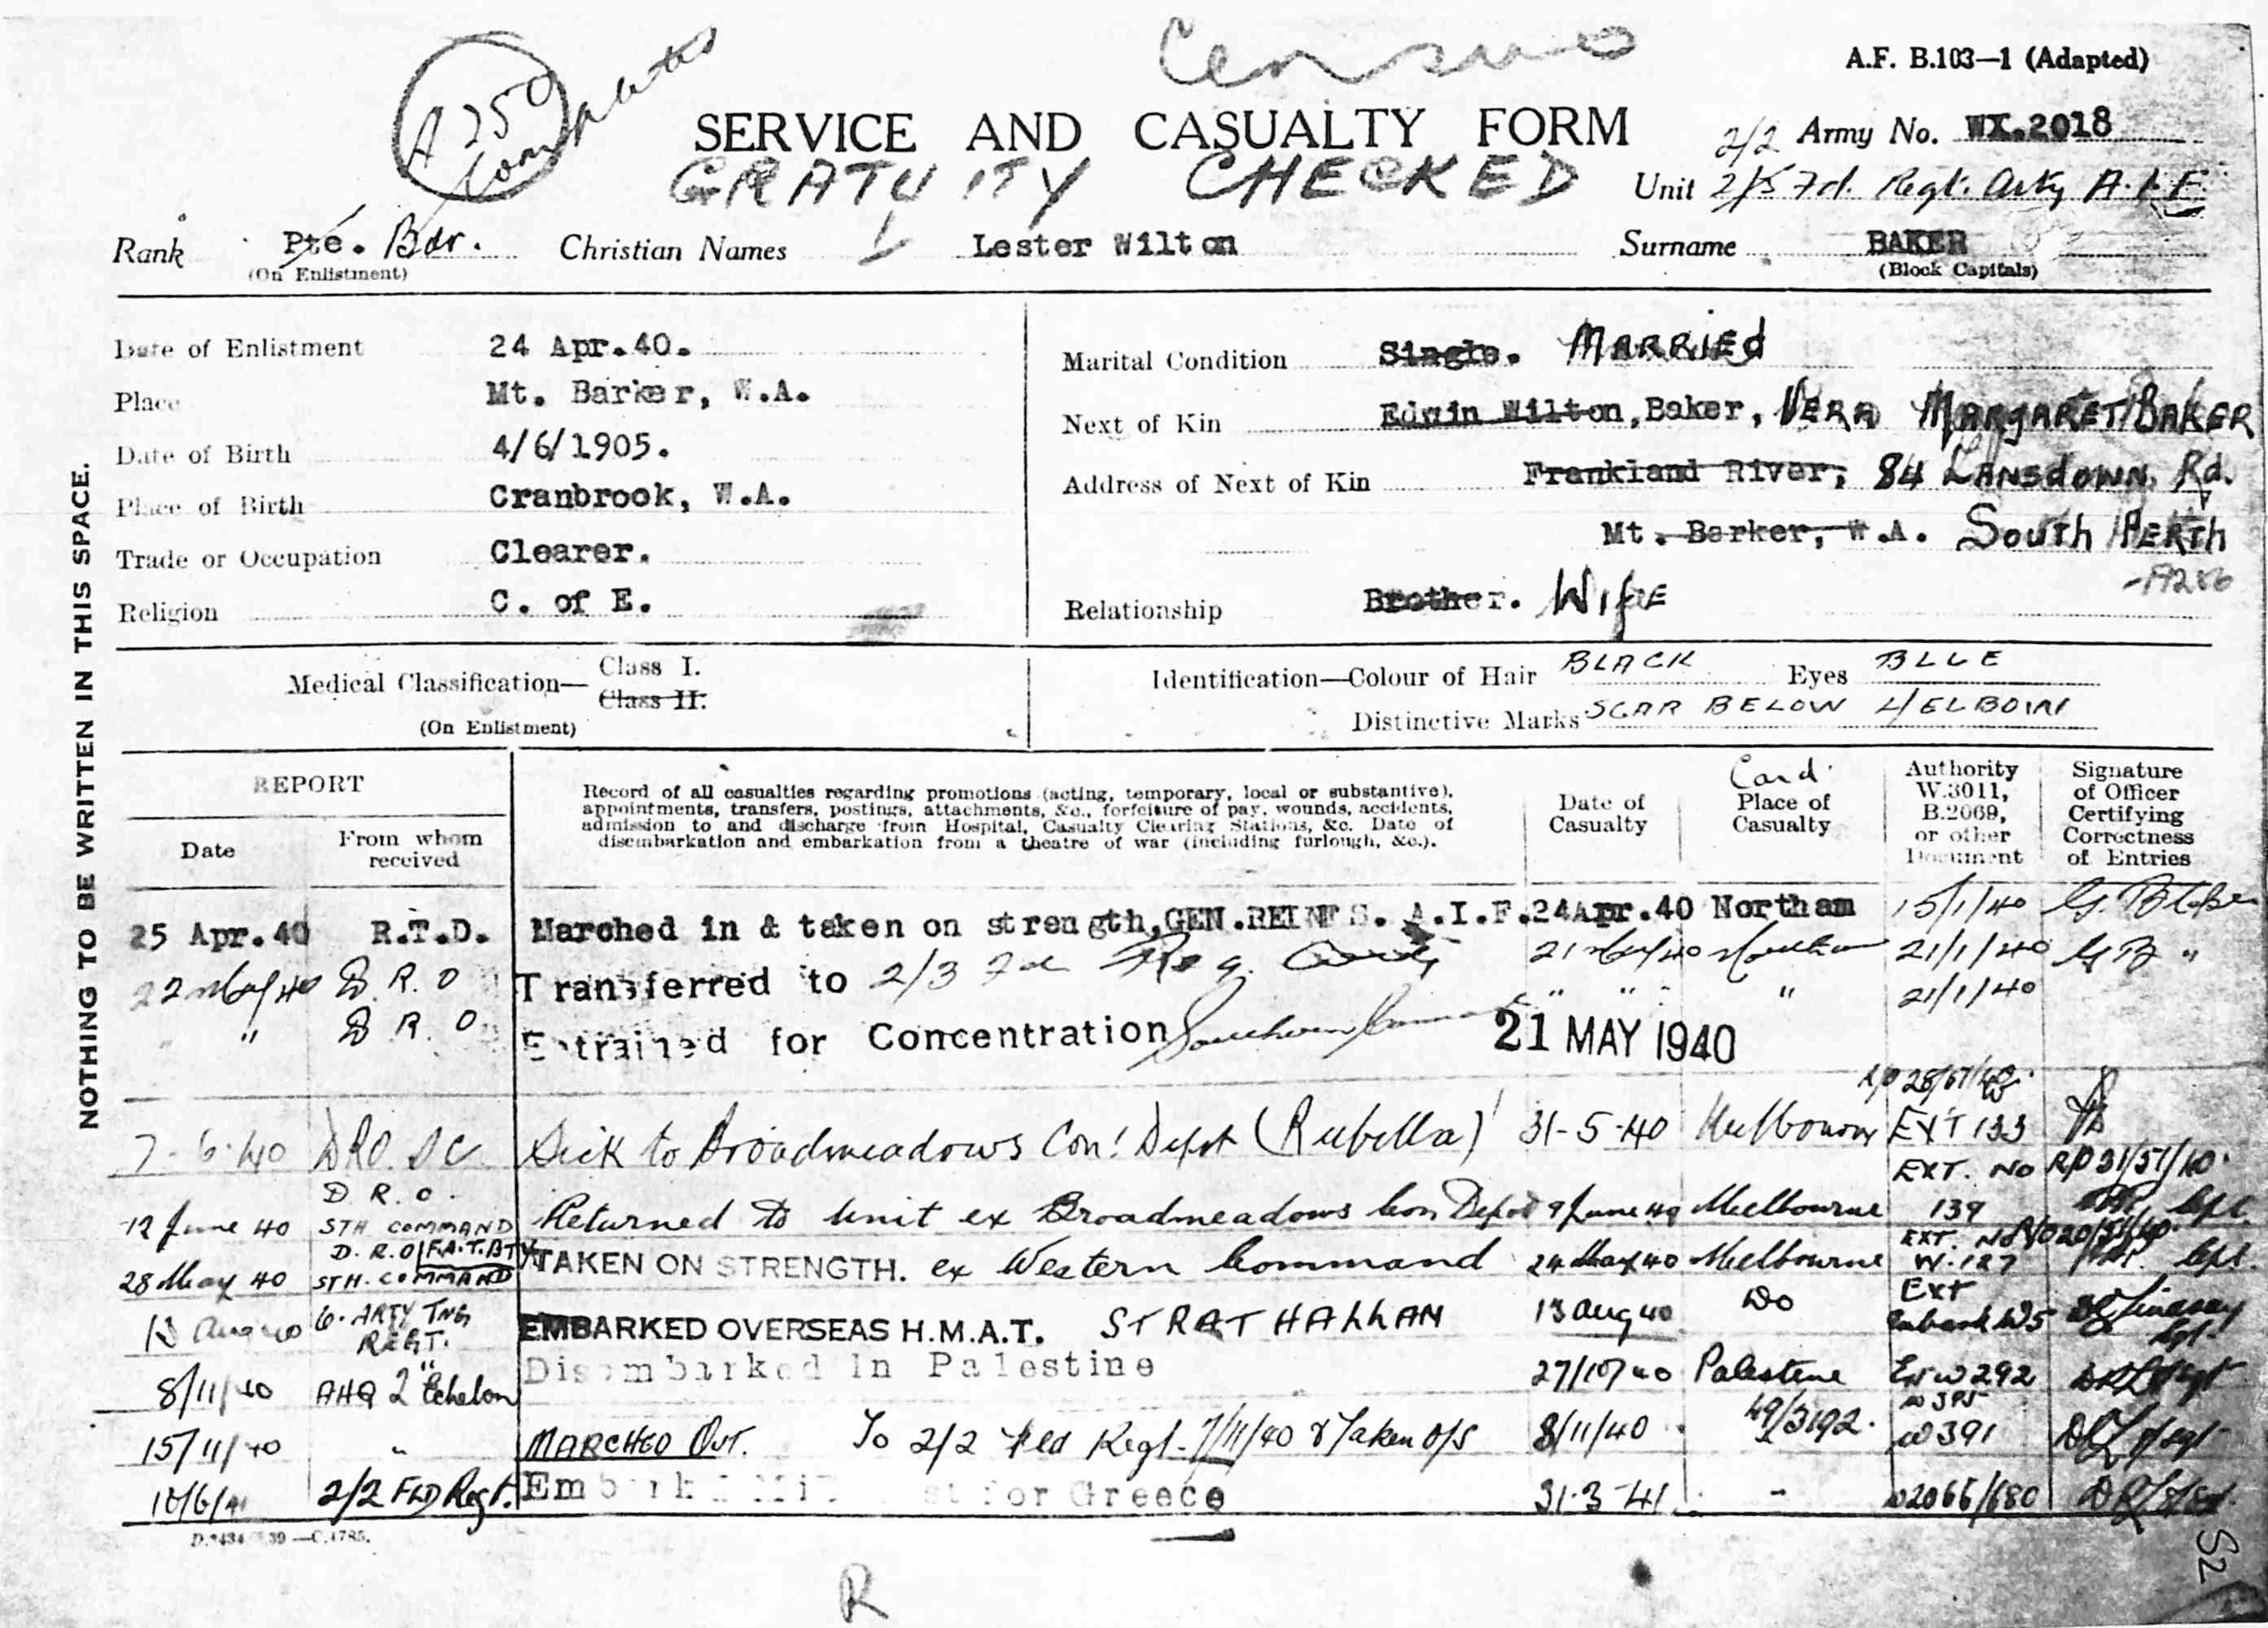 Census
A.F. B.103—1 (Adapted)
A 259
Completed
SERVICE AND CASUALTY FORM
2/2 Army No. WX.2018
GRATUITY CHECKED
Unit 2/5 Fd. Regt. Arty A.I.F.
Rank Pte. Bdr. Christian Names Lester Wilton Surname BAKER
(On Enlistment) (Block Capitals)
Date of Enlistment 24 Apr.40.
Place Mt. Barker, W.A.
Date of Birth 4/6/1905.
Place of Birth Cranbrook, W.A.
Trade or Occupation Clearer.
Religion C. of E.
Marital Condition Single. MARRIEd
Next of Kin Edwin Wilton, Baker, VERA MARGARET BAKER
Address of Next of Kin Frankland River, 84 LANSdOWN Rd.
Mt. Barker, W.A. South PERTh
Relationship Brother. WIfE
Medical Classification— Class I.
Class II.
(On Enlistment)
Identification—Colour of Hair BLACK Eyes BLUE
Distinctive Marks SCAR BELOW L/ELBOW
NOTHING TO BE WRITTEN IN THIS SPACE.
REPORT
Date
From whom received
Record of all casualties regarding promotions (acting, temporary, local or substantive),
appointments, transfers, postings, attachments, &c., forfeiture of pay, wounds, accidents,
admission to and discharge from Hospital, Casualty Clearing Stations, &c. Date of
disembarkation and embarkation from a theatre of war (including furlough, &c.).
Date of Casualty
Card
Place of Casualty
Authority W.3011, B.2069, or other Document
Signature of Officer Certifying Correctness of Entries
25 Apr.40 R.T.D. Marched in & taken on strength, GEN.REINFS. A.I.F. 24Apr.40 Northam 15/1/40
22 May/40 D.R.O Transferred to 2/3 Fd Reg. 21 May/40 Northam 21/1/40 GB "
" D.R.O. Entrained for Concentration Southern Command " " " 21/1/40
21 MAY 1940
7-6-40 DRO. SC Sick to Broadmeadows Con. Depot (Rubella) 31-5-40 Melbourne EXT 133
EXT. No R/O 31/51/40
12 June 40 D.R.O. STH COMMAND Returned to Unit ex Broadmeadows Con Depot 9 June 40 Melbourne 139
28 May 40 D.R.O F.A.T.BTY STH. COMMAND TAKEN ON STRENGTH. ex Western Command 24 May 40 Melbourne W.127
13 Aug 40 6. ARTY TNG REGT. EMBARKED OVERSEAS H.M.A.T. STRATHALLAN 13 Aug 40 Do Ext Embark W5 Lindsay
8/11/40 AHQ 2 Echelon Disembarked in Palestine 27/10/40 Palestine W292
15/11/40 " MARCHED OUT. To 2/2 Fld Regt. 7/11/40 & Taken O/S 8/11/40 49/3192. W391
10/6/41 2/2 FLD Regt. Embarked for Greece 31-3-41 - W2066/680
R
52